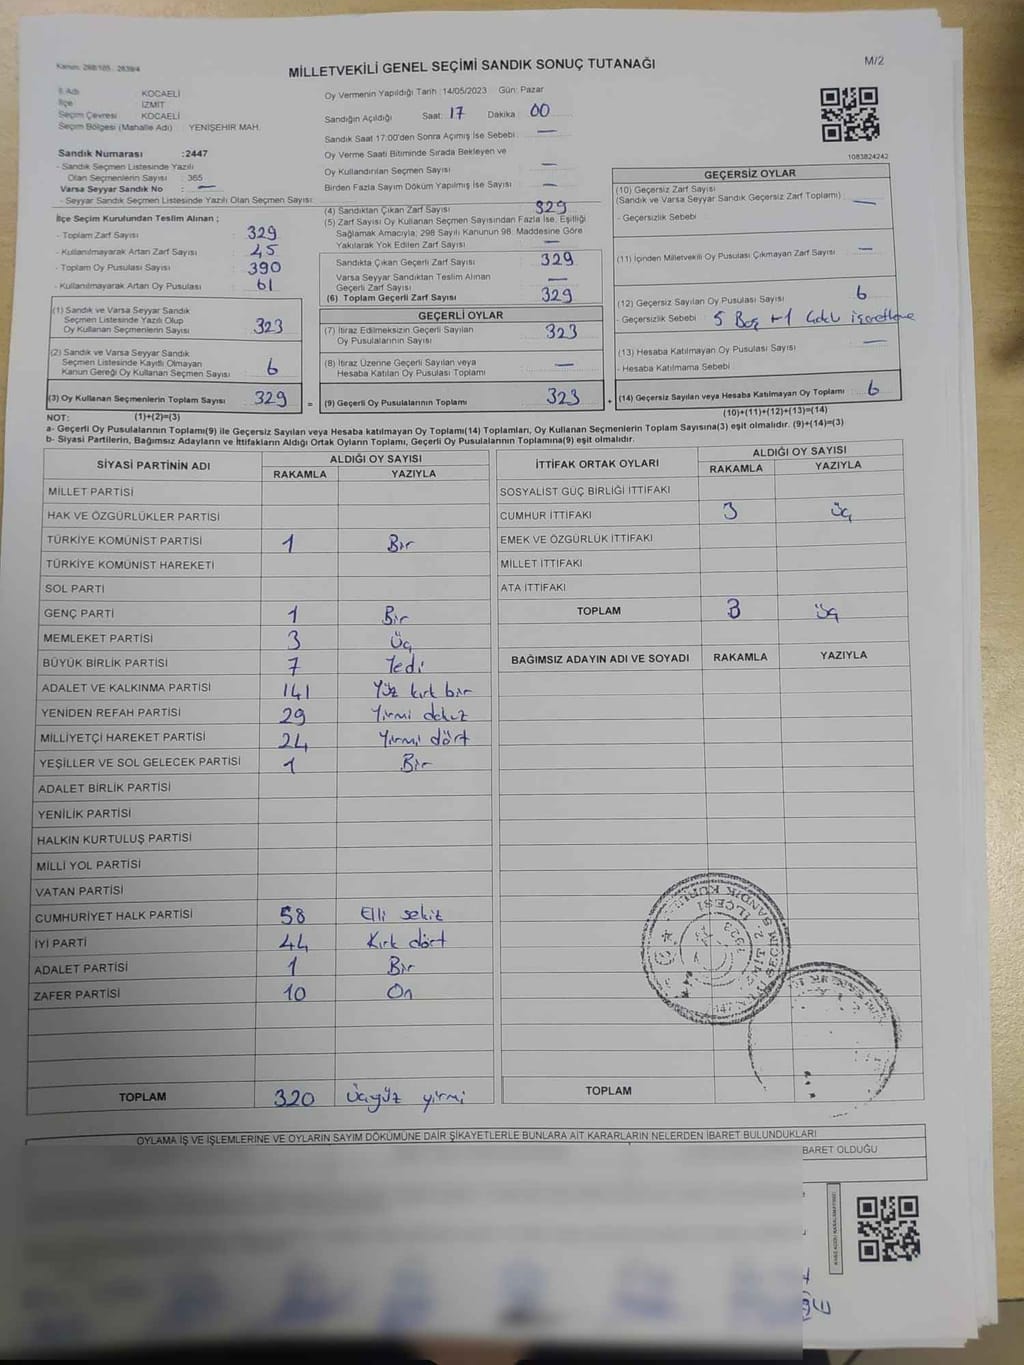 Kanun: 298/105 : 2839/4
MİLLETVEKİLİ GENEL SEÇİMİ SANDIK SONUÇ TUTANAĞI
M/2
İl Adı KOCAELİ
İlçe İZMİT
Seçim Çevresi KOCAELİ
Seçim Bölgesi (Mahalle Adı) YENİŞEHİR MAH.
Sandık Numarası :2447
- Sandık Seçmen Listesinde Yazılı
Olan Seçmenlerin Sayısı : 365
Varsa Seyyar Sandık No : —
- Seyyar Sandık Seçmen Listesinde Yazılı Olan Seçmen Sayısı:
Oy Vermenin Yapıldığı Tarih : 14/05/2023 Gün: Pazar
Sandığın Açıldığı Saat: 17 Dakika 00
Sandık Saat 17:00'den Sonra Açımış İse Sebebi : —
Oy Verme Saati Bitiminde Sırada Bekleyen ve
Oy Kullandırılan Seçmen Sayısı —
Birden Fazla Sayım Döküm Yapılmış İse Sayısı —
1083824242
İlçe Seçim Kurulundan Teslim Alınan ;
- Toplam Zarf Sayısı : 329
- Kullanılmayarak Artan Zarf Sayısı : 45
- Toplam Oy Pusulası Sayısı : 390
- Kullanılmayarak Artan Oy Pusulası : 61
(1) Sandık ve Varsa Seyyar Sandık
Seçmen Listesinde Yazılı Olup
Oy Kullanan Seçmenlerin Sayısı 323
(2) Sandık ve Varsa Seyyar Sandık
Seçmen Listesinde Kayıtlı Olmayan
Kanun Gereği Oy Kullanan Seçmen Sayısı 6
(3) Oy Kullanan Seçmenlerin Toplam Sayısı 329
(4) Sandıktan Çıkan Zarf Sayısı 329
(5) Zarf Sayısı Oy Kullanan Seçmen Sayısından Fazla İse, Eşitliği
Sağlamak Amacıyla; 298 Sayılı Kanunun 98. Maddesine Göre
Yakılarak Yok Edilen Zarf Sayısı —
Sandıkta Çıkan Geçerli Zarf Sayısı 329
Varsa Seyyar Sandıktan Teslim Alınan
Geçerli Zarf Sayısı —
(6) Toplam Geçerli Zarf Sayısı 329
GEÇERLİ OYLAR
(7) İtiraz Edilmeksizin Geçerli Sayılan
Oy Pusulalarının Sayısı 323
(8) İtiraz Üzerine Geçerli Sayılan veya
Hesaba Katılan Oy Pusulası Toplamı —
= (9) Geçerli Oy Pusulalarının Toplamı 323 +
GEÇERSİZ OYLAR
(10) Geçersiz Zarf Sayısı
(Sandık ve Varsa Seyyar Sandık Geçersiz Zarf Toplamı) —
- Geçersizlik Sebebi :
(11) İçinden Milletvekil Oy Pusulası Çıkmayan Zarf Sayısı —
(12) Geçersiz Sayılan Oy Pusulası Sayısı 6
- Geçersizlik Sebebi : 5 Boş +1 işaretleme
(13) Hesaba Katılmayan Oy Pusulası Sayısı —
- Hesaba Katılmama Sebebi :
(14) Geçersiz Sayılan veya Hesaba Katılmayan Oy Toplamı 6
NOT: (1)+(2)=(3)
(10)+(11)+(12)+(13)=(14)
a- Geçerli Oy Pusulalarının Toplamı(9) ile Geçersiz Sayılan veya Hesaba katılmayan Oy Toplamı(14) Toplamları, Oy Kullanan Seçmenlerin Toplam Sayısına(3) eşit olmalıdır. (9)+(14)=(3)
b- Siyasi Partilerin, Bağımsız Adayların ve İttifakların Aldığı Ortak Oyların Toplamı, Geçerli Oy Pusulalarının Toplamına(9) eşit olmalıdır.
SİYASİ PARTİNİN ADI ALDIĞI OY SAYISI
RAKAMLA YAZIYLA
MİLLET PARTİSİ
HAK VE ÖZGÜRLÜKLER PARTİSİ
TÜRKİYE KOMÜNİST PARTİSİ 1 Bir
TÜRKİYE KOMÜNİST HAREKETİ
SOL PARTİ
GENÇ PARTİ 1 Bir
MEMLEKET PARTİSİ 3 Üç
BÜYÜK BİRLİK PARTİSİ 7 Yedi
ADALET VE KALKINMA PARTİSİ 141 Yüz kırk bir
YENİDEN REFAH PARTİSİ 29 Yirmi dokuz
MİLLİYETÇİ HAREKET PARTİSİ 24 Yirmi dört
YEŞİLLER VE SOL GELECEK PARTİSİ 1 Bir
ADALET BİRLİK PARTİSİ
YENİLİK PARTİSİ
HALKIN KURTULUŞ PARTİSİ
MİLLİ YOL PARTİSİ
VATAN PARTİSİ
CUMHURİYET HALK PARTİSİ 58 Elli sekiz
İYİ PARTİ 44 Kırk dört
ADALET PARTİSİ 1 Bir
ZAFER PARTİSİ 10 On
TOPLAM 320 Üçyüz yirmi
İTTİFAK ORTAK OYLARI ALDIĞI OY SAYISI
RAKAMLA YAZIYLA
SOSYALİST GÜÇ BİRLİĞİ İTTİFAKI
CUMHUR İTTİFAKI 3 üç
EMEK VE ÖZGÜRLÜK İTTİFAKI
MİLLET İTTİFAKI
ATA İTTİFAKI
TOPLAM 3 üç
BAĞIMSIZ ADAYIN ADI VE SOYADI RAKAMLA YAZIYLA
TOPLAM
OYLAMA İŞ VE İŞLEMLERİNE VE OYLARIN SAYIM DÖKÜMÜNE DAİR ŞİKAYETLERLE BUNLARA AİT KARARLARIN NELERDEN İBARET BULUNDUKLARI
BARET OLDUĞU